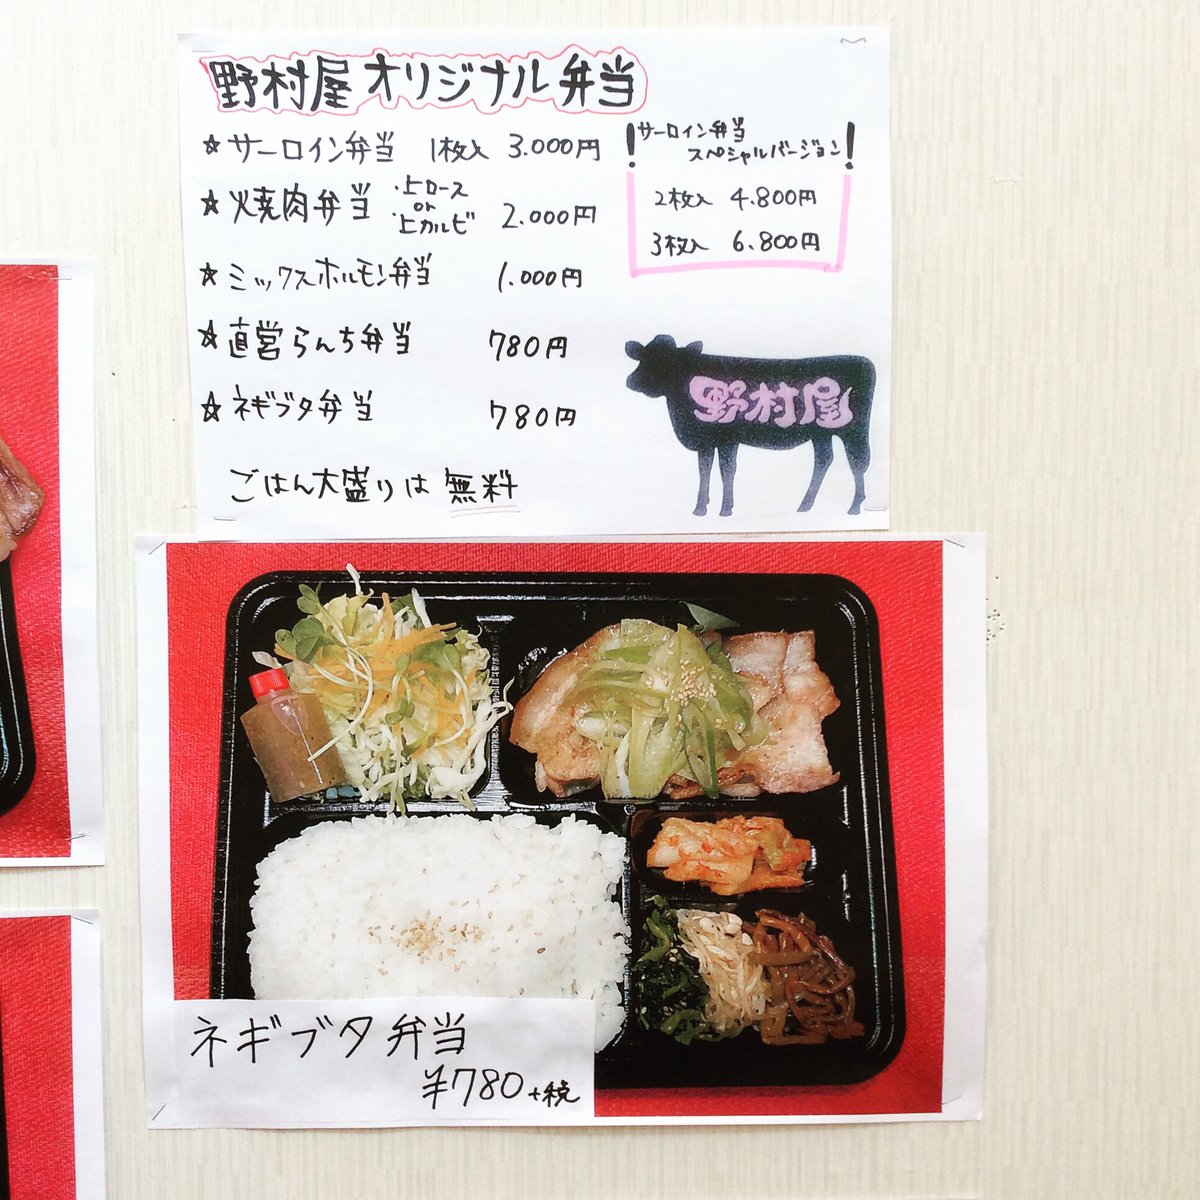 野村屋オリジナル弁当
☆サーロイン弁当 1枚入 3.000円
☆焼肉弁当 ・上ロース or ・上カルビ 2.000円
☆ミックスホルモン弁当 1.000円
☆直営らんち弁当 780円
☆ネギブタ弁当 780円
ごはん大盛りは無料
!サーロイン弁当
スペシャルバージョン!
2枚入 4.800円
3枚入 6.800円
野村屋
ネギブタ弁当
¥780+税